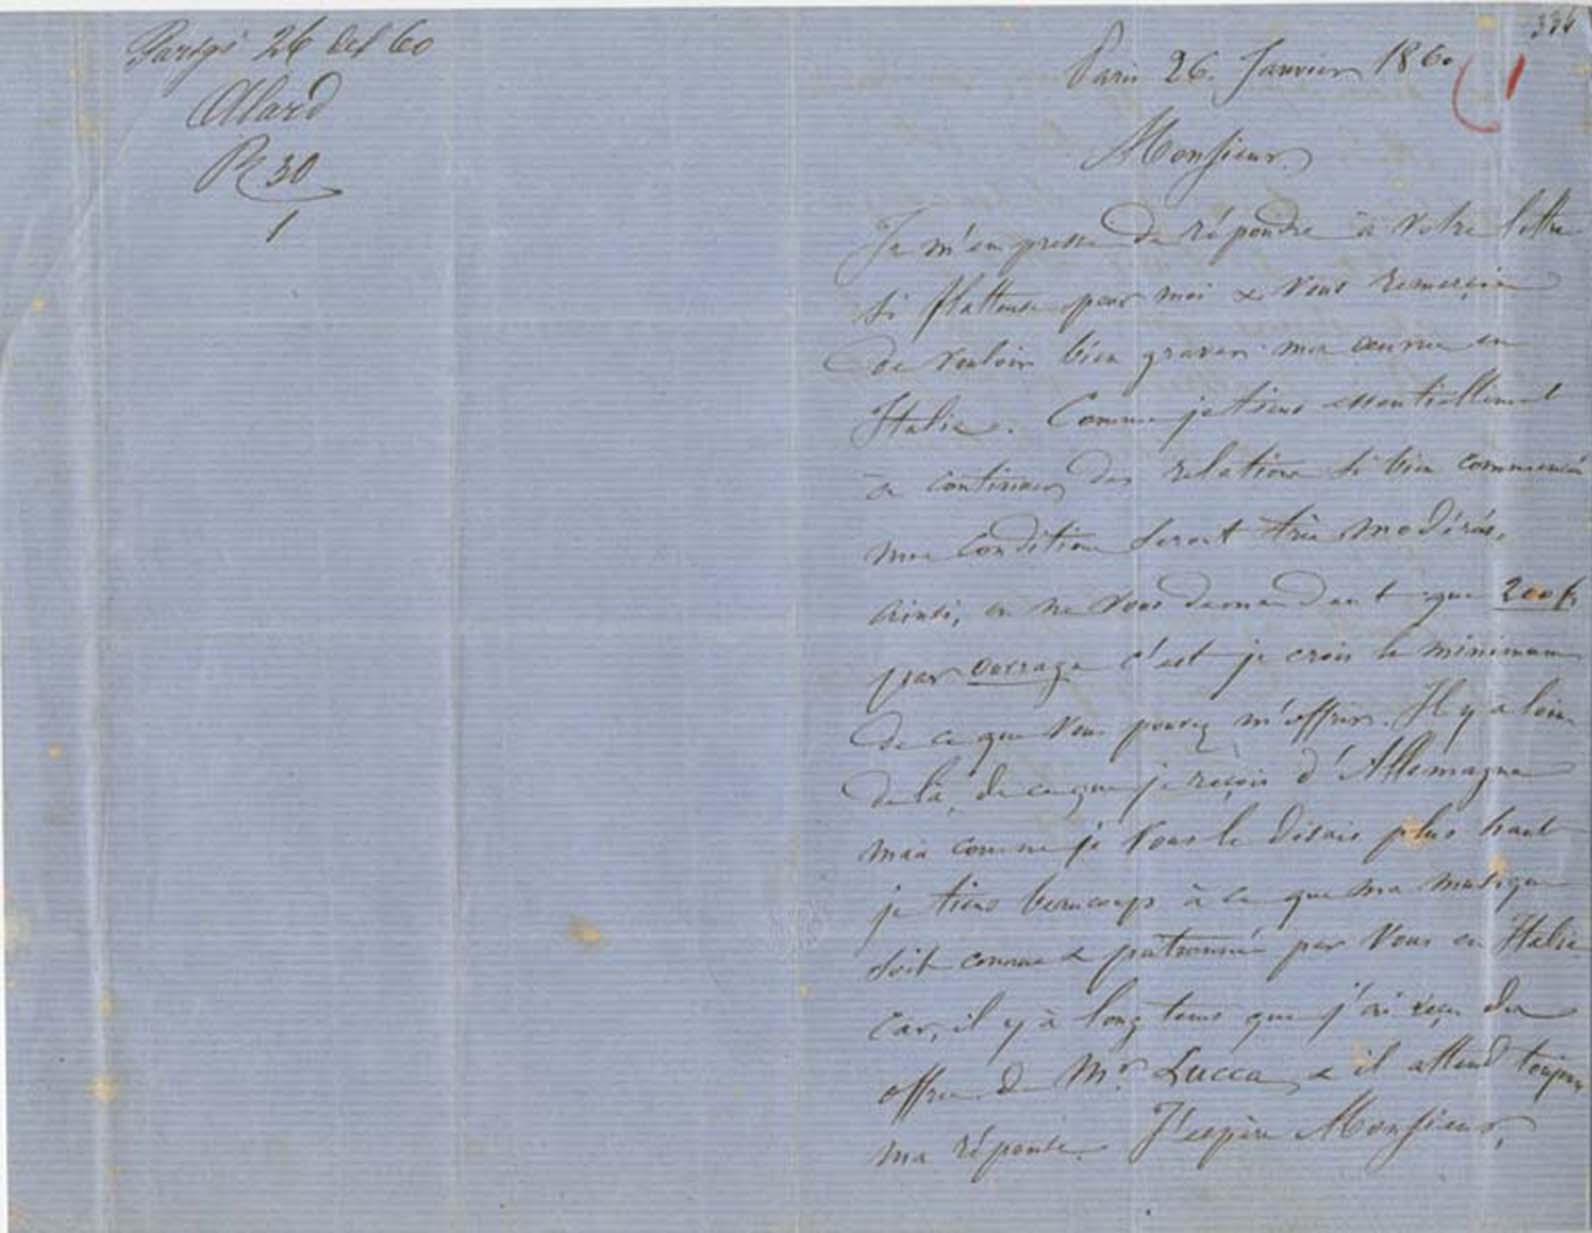 Parigi 26 del 60
Alard
R 30
1
334
Paris 26. Janvier 1860
1
Monsieur.
Je m'empresse de répondre à votre lettre
si flatteuse pour moi & vous remercier
de vouloir bien graver mes œuvres en
Italie. Comme je tiens essentiellement
à continuer des relations si bien commencées
mes conditions seront très modérées.
ainsi, en ne vous demandant que 200 f.
par ouvrage c'est je crois le minimum
de ce que vous pouvez m'offrir. Il y a loin
de là, de ce que je reçois d'Allemagne
mais comme je vous le disais plus haut
je tiens beaucoup à ce que ma musique
soit connue & patronnée par vous en Italie
car, il y à long tems que j'ai reçu des
offres de Mr. Lucca, & il attend toujours
ma réponse. J'espère Monsieur,